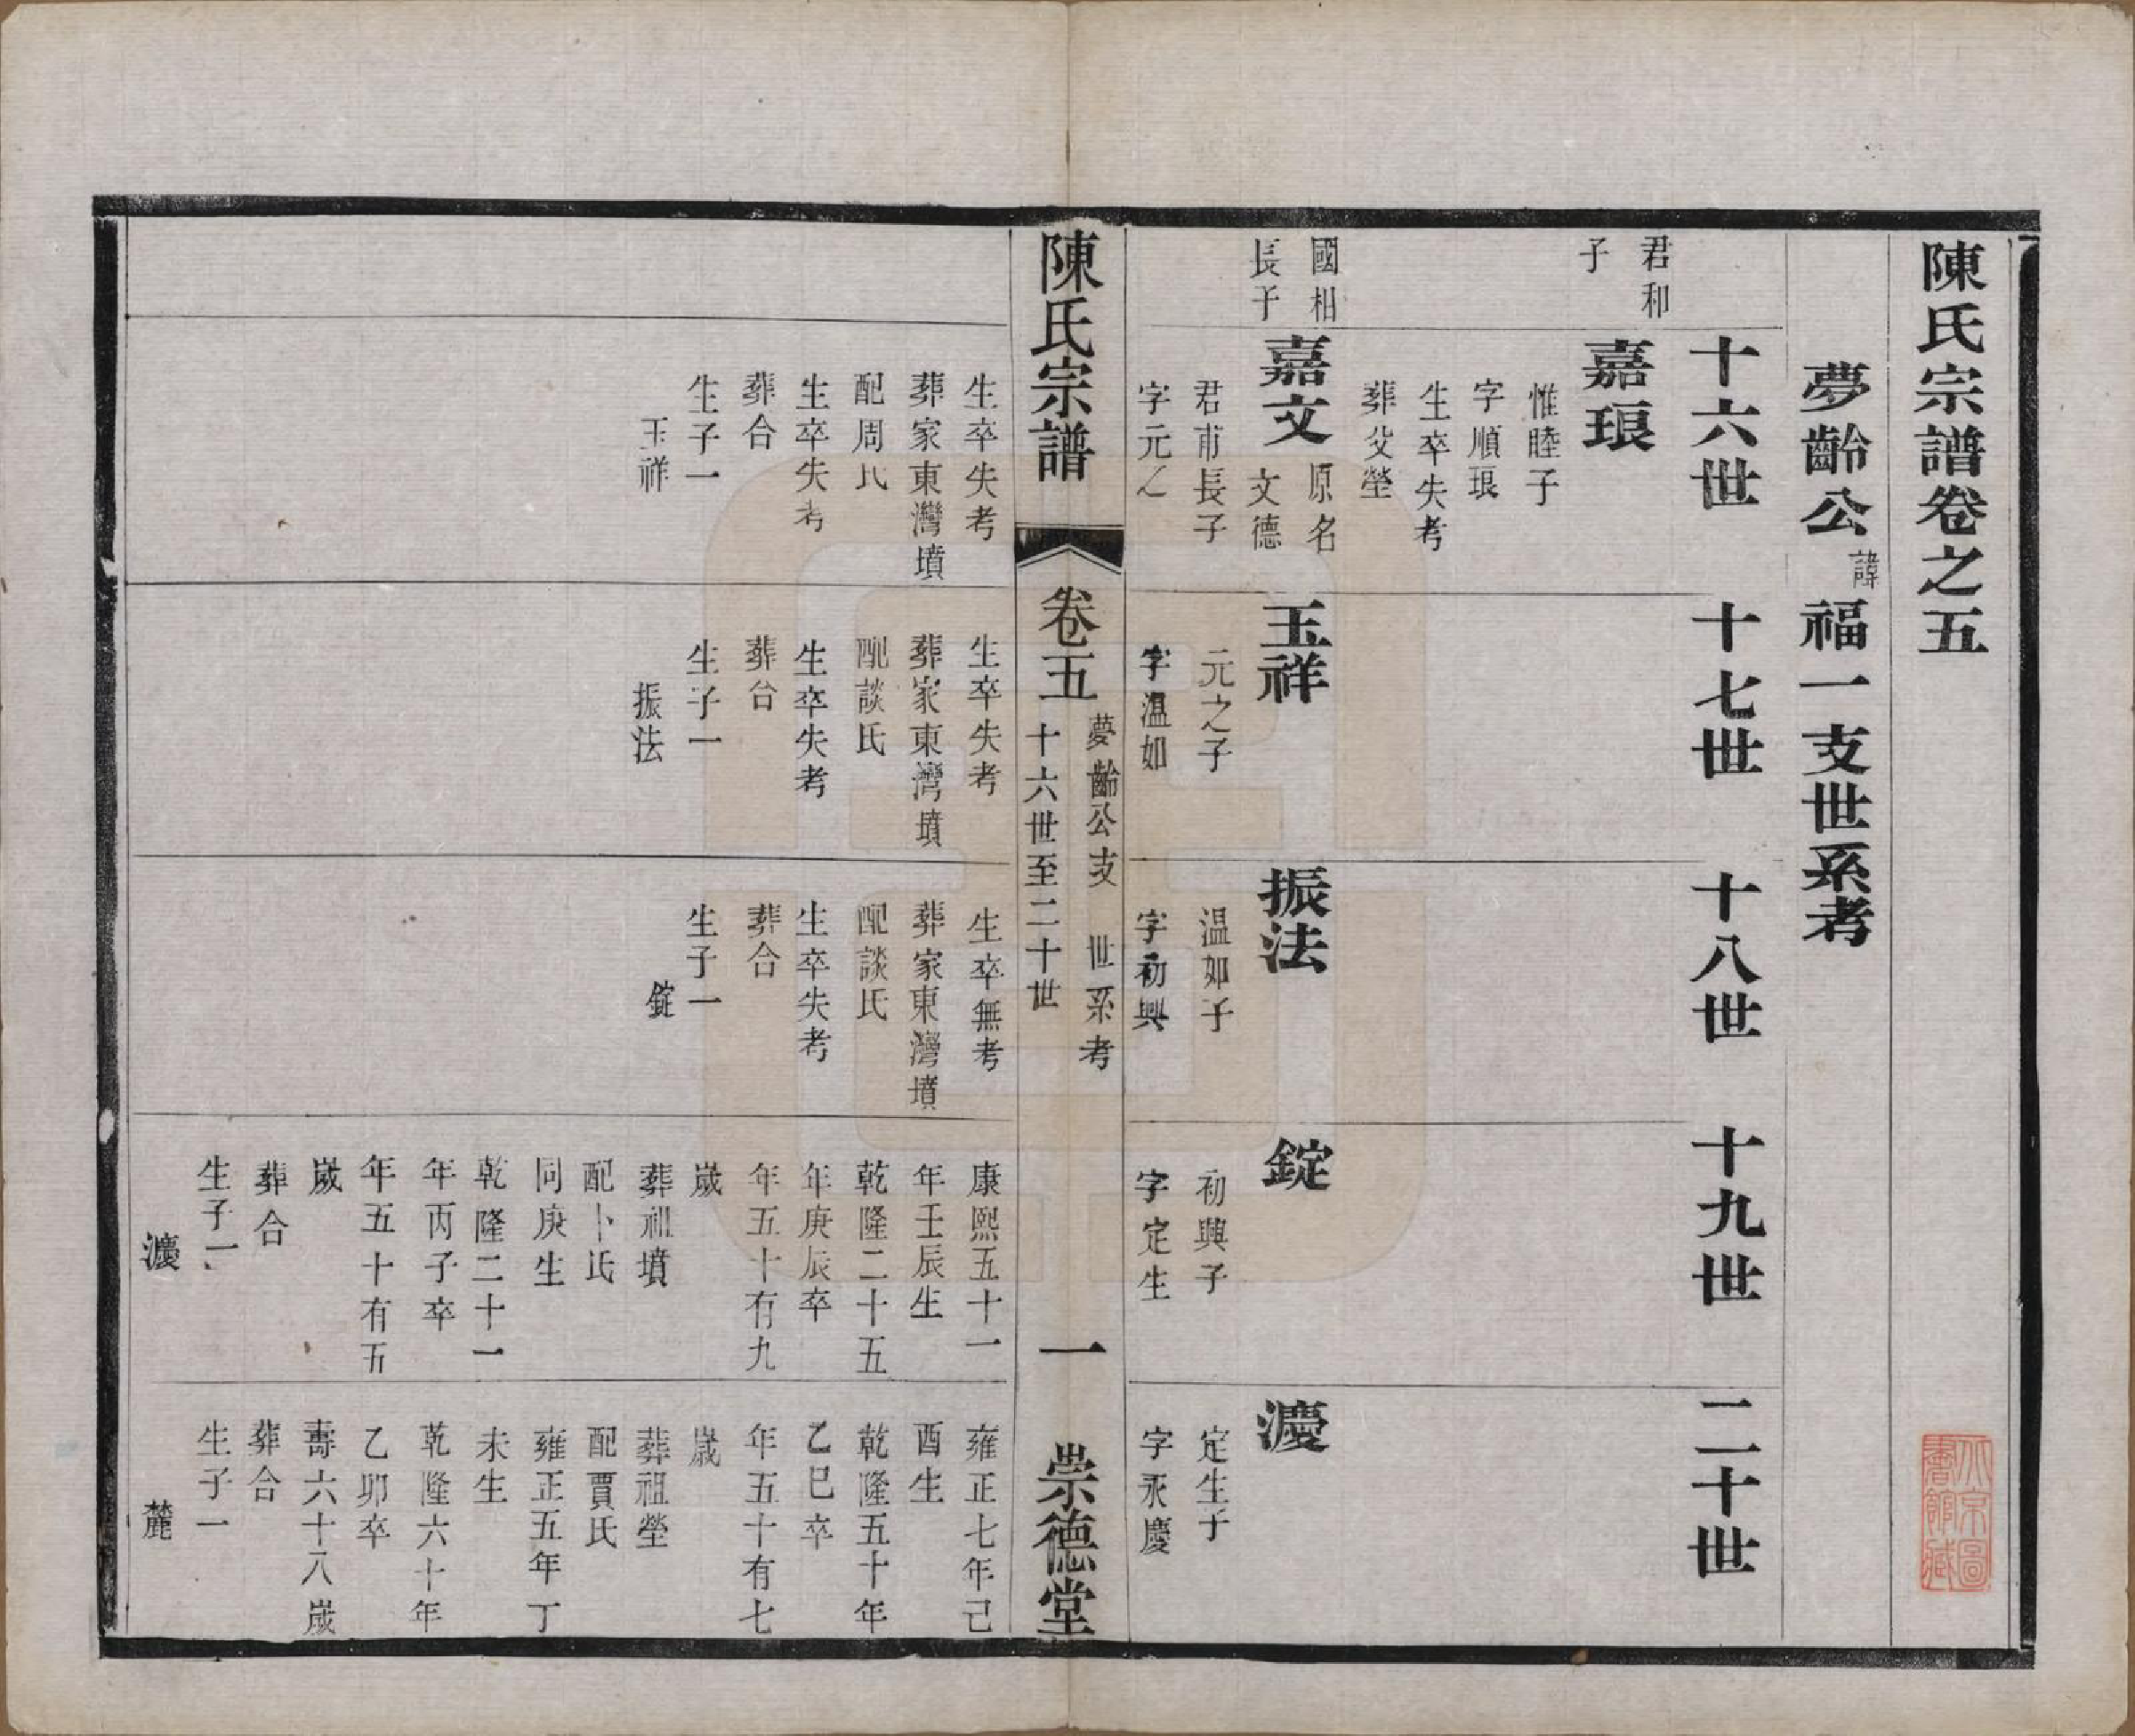 陳氏宗譜卷之五
夢齡公諱福一支世系考
十六世
十七世
十八世
十九世
二十世
君和
子
嘉琅
惟睦子
字順琅
生卒失考
葬父塋
國相
長子
嘉文
原名
文德
君甫長子
字元之
生卒失考
葬家東灣墳
配周氏
生卒失考
葬合
生子一
玉祥
玉祥
元之子
字溫如
生卒失考
葬家東灣墳
配談氏
生卒失考
葬合
生子一
振法
振法
温如子
字初興
生卒無考
葬家東灣墳
配談氏
生卒失考
葬合
生子一
錠
錠
初興子
字定生
康熙五十一
年壬辰生
乾隆二十五
年庚辰卒
年五十有九
歲
葬祖墳
配卜氏
同庚生
乾隆二十一
年丙子卒
年五十有五
歲
葬合
生子一
濹
濹
定生子
字永慶
雍正七年己
酉生
乾隆五十年
乙巳卒
年五十有七
歲
葬祖塋
配賈氏
雍正五年丁
未生
乾隆六十年
乙卯卒
壽六十八歲
葬合
生子一
麓
陳氏宗譜
卷五
夢齡公支 世系考
十六世至二十世
一
崇德堂
北京圖
書館藏